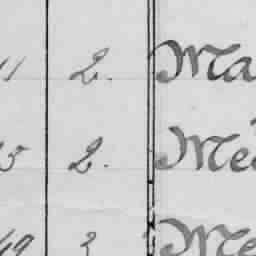 11 2. Ma
5 2. Me
49 2 Me